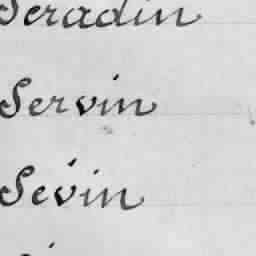 Seradin
Servin
Sévin